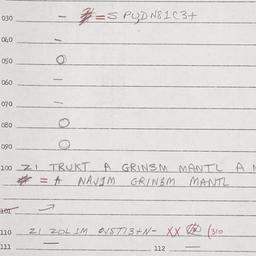 030 – # = S PUDN81C3+
040 –
050 O
060 –
070 –
080 O
090 O
100 21 TRUKT A GRINSM MANTL A
# = A NAVIM GRINSM MANTL
101
110 21 ZOLIM XX (310
111 – 112 –